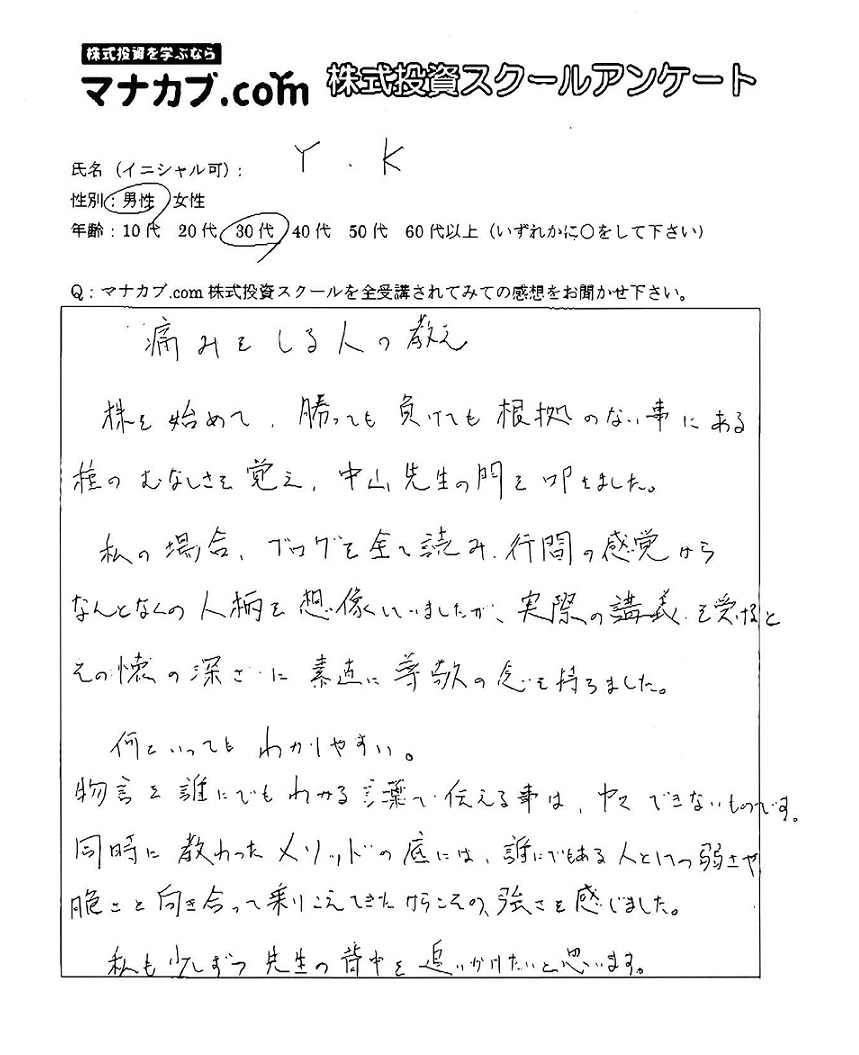 株式投資を学ぶなら
マナカブ.com 株式投資スクールアンケート
氏名（イニシャル可）: Y.K
性別：男性/女性
年齢：10代 20代 30代 40代 50代 60代以上（いずれかに○をして下さい）
Q：マナカブ.com 株式投資スクールを全受講されてみての感想をお聞かせ下さい。
痛みをしる人の教え
株を始めて、勝っても負けても根拠のない事にある
種のむなしさを覚え、中山先生の門を叩きました。
私の場合、ブログを全て読み、行間の感覚から
なんとなくの人柄を想像していましたが、実際の講義を受けると
その懐の深さに素直に尊敬の念を持ちました。
何といってもわかりやすい。
物言を誰にでもわかる言葉で伝える事は、中々できないものです。
同時に教わったメリッドの底には、誰にでもある人としての弱さや
脆さと向き合って乗りこえてきたからこその、強さを感じました。
私も少しずつ先生の背中を追いかけたいと思います。